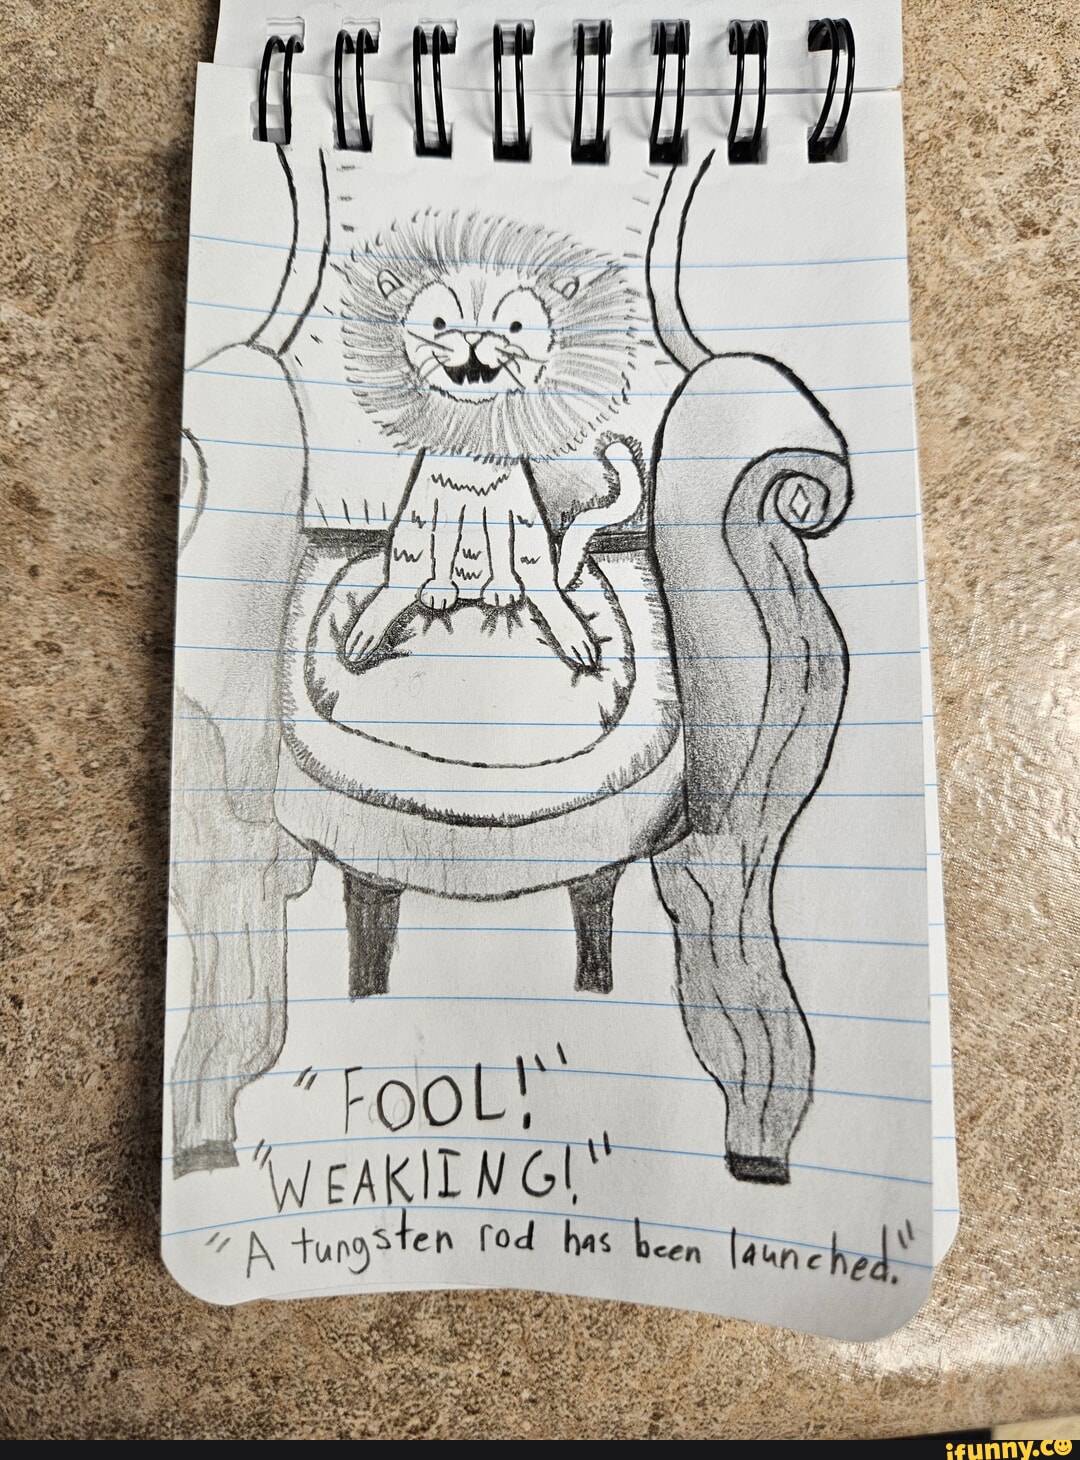 "FOOL!"
"WEAKlING!"
"A tungsten rod has been launched."
ifunny.co